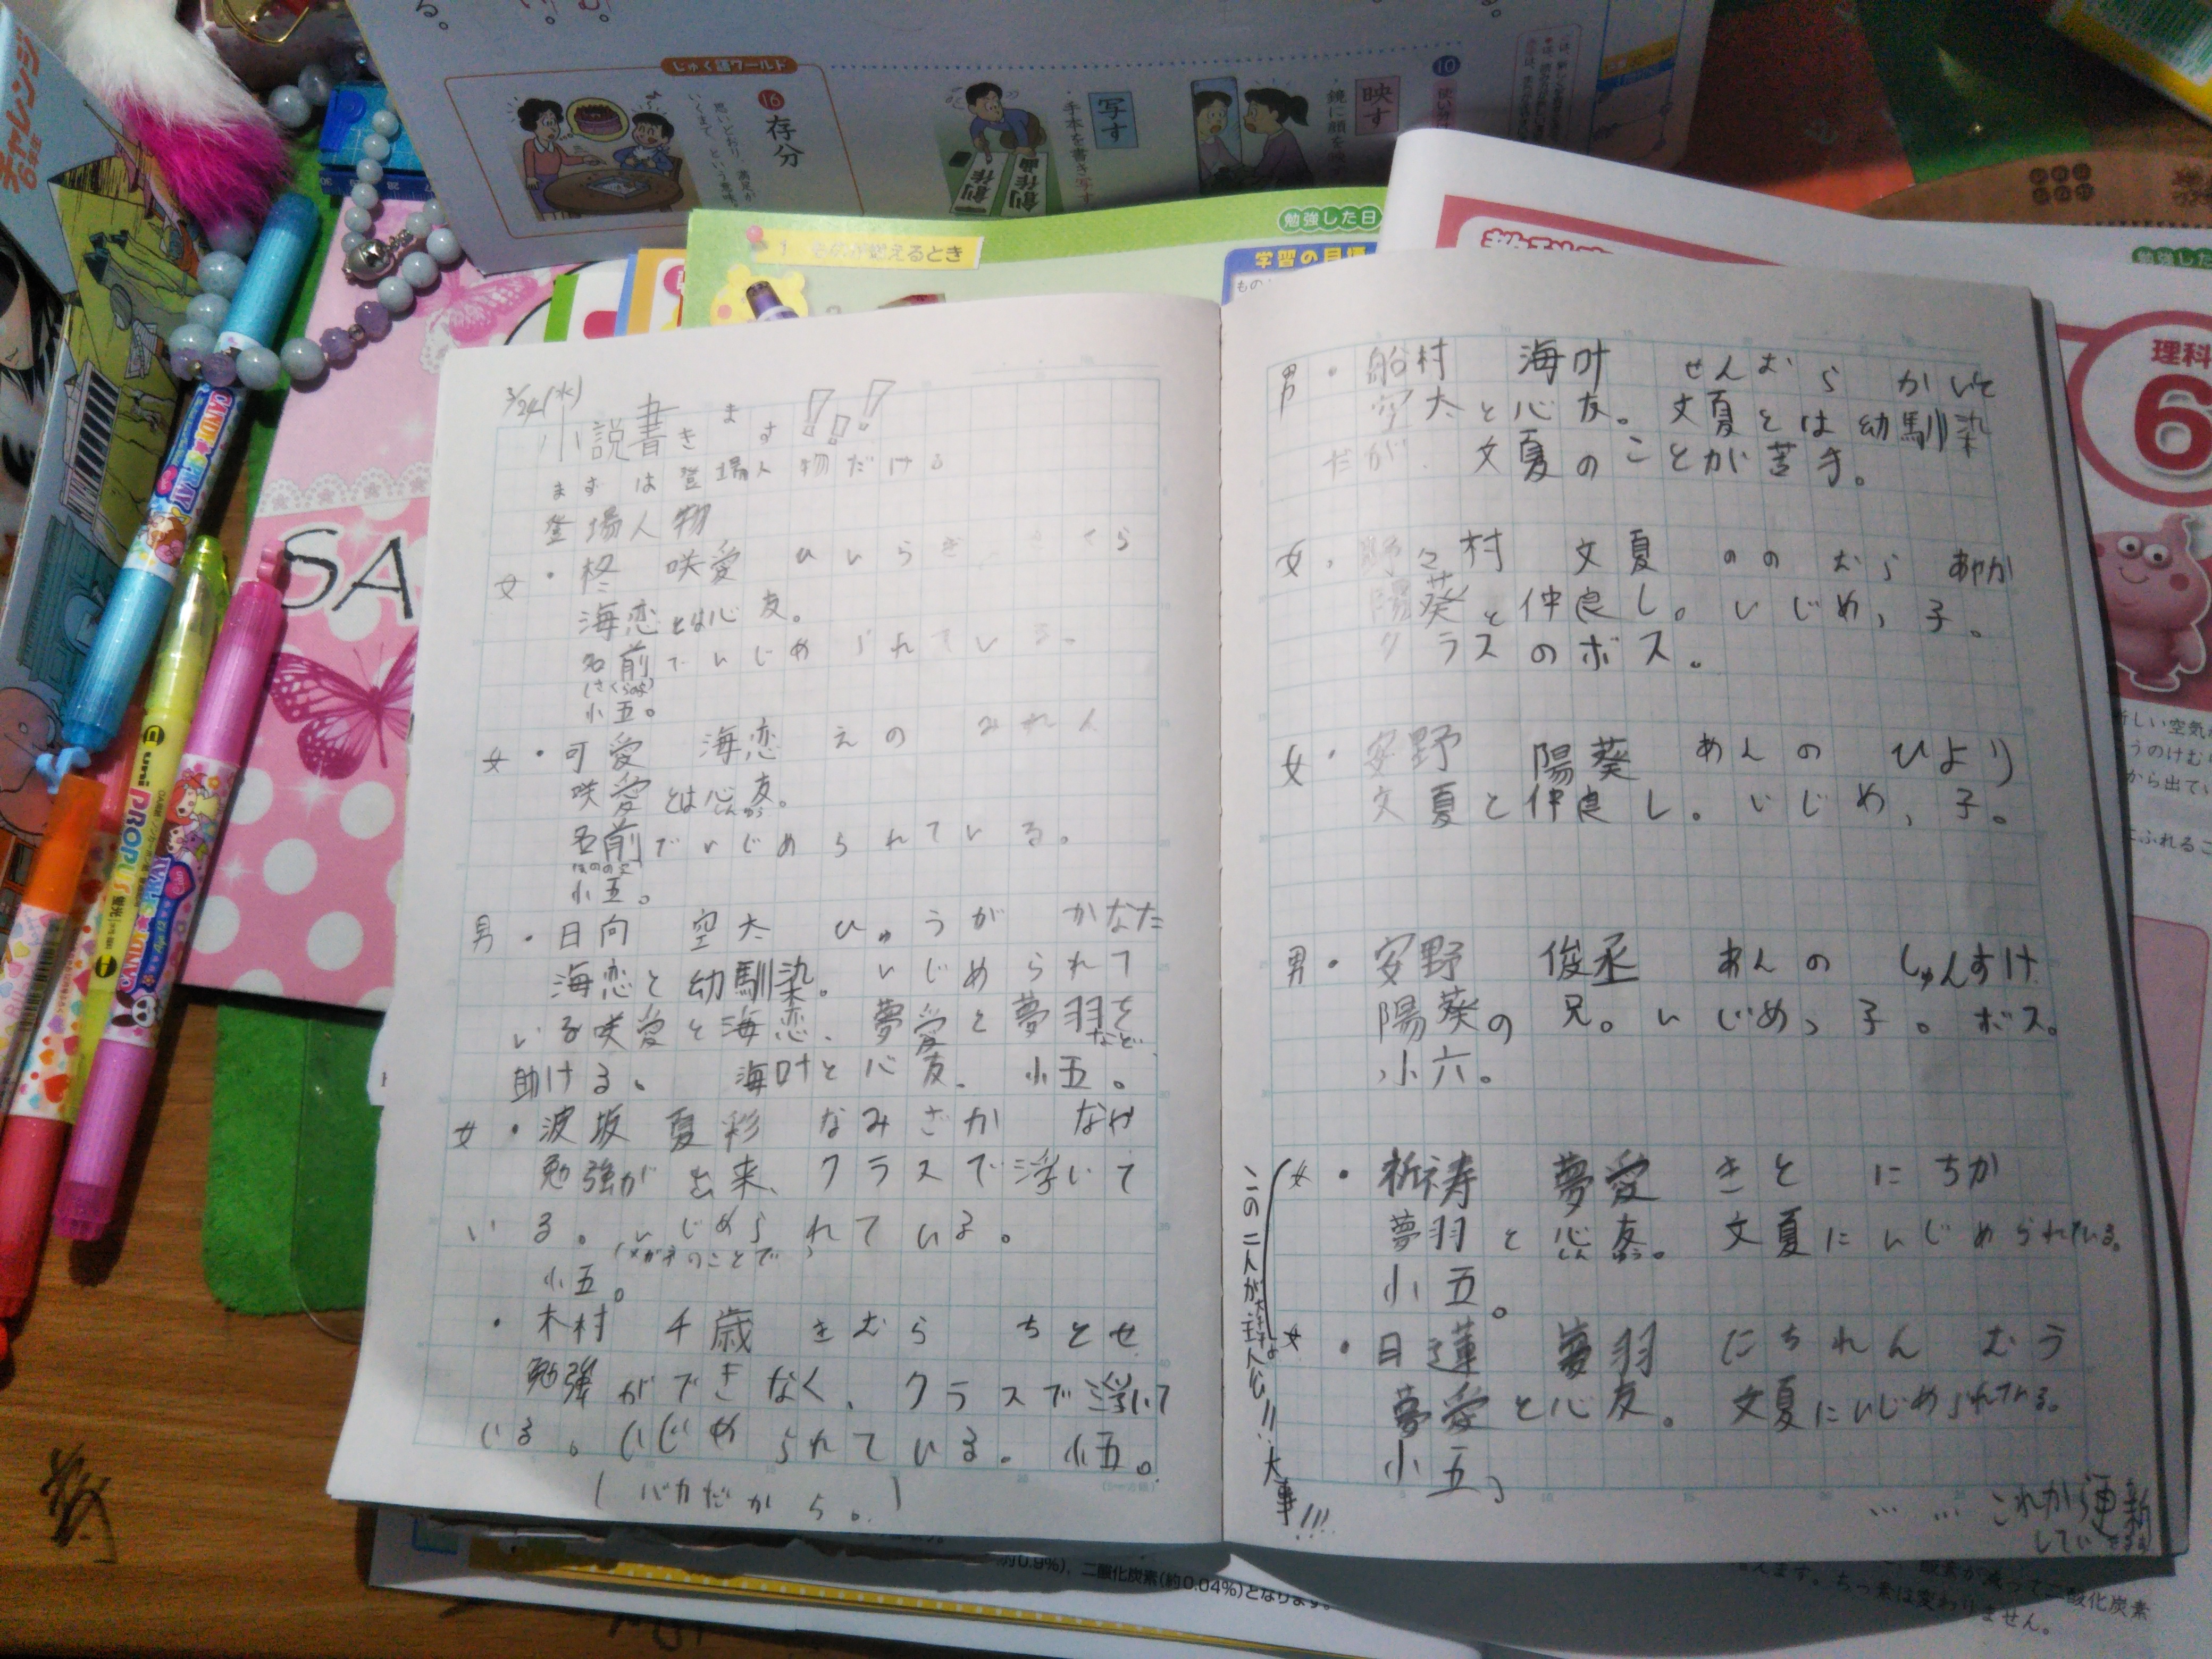 チャレンジ
6年生
じゅく語ワールド
16
存分
思いどおり、満足が
いくまで、という意味。
写す
・手本を書き写す
創作
創作
10
映す
勉強した日
ものが燃えるとき
学習の目標
勉強した
理科
6
SA
uni PROPUS
蛍光
3/24(水)
小説書きます!!!
まずは登場人物だける
登場人物
女・柊 咲愛 ひいらぎ さくら
海恋とは心友。
名前でいじめられている。
小五。
女・可愛 海恋 えの みれん
咲愛とは心友。
しんゆう
名前でいじめられている。
小五。
男・日向 空太 ひゅうが かなた
海恋と幼馴染。いじめられて
いる咲愛と海恋、夢愛と夢羽を
など
助ける。 海叶と心友。 小五。
女・波坂 夏彩 なみさか なや
勉強が出来、クラスで浮いて
いる。いじめられている。
(メガネのことで)
小五。
・木村 千歳 きむら ちとせ
勉強ができなく、クラスで浮いて
いる。いじめられている。小五。
(バカだから。)
男・船村 海叶 せんむら かいと
空太と心友。文夏とは幼馴染
だが、文夏のことが苦手。
女・野々村 文夏 ののむら あやか
陽葵と仲良し。いじめっ子。
クラスのボス。
女・安野 陽葵 あんの ひより
文夏と仲良し。いじめっ子。
男・安野 俊丞 あんの しゅんすけ
陽葵の兄。いじめっ子。ボス。
小六。
女・祈祷 夢愛 きと にちか
夢羽と心友。文夏にいじめられている。
しんゆう
小五。
女・日蓮 夢羽 にちれん むう
夢愛と心友。文夏にいじめられている。
小五。
この二人が主人公!!大事!!!
……これから更新
してい
約0.9%)、二酸化炭素(約0.04%)となります。
酸素が減って二酸化炭素
増えます。ちっ素は変わりません。